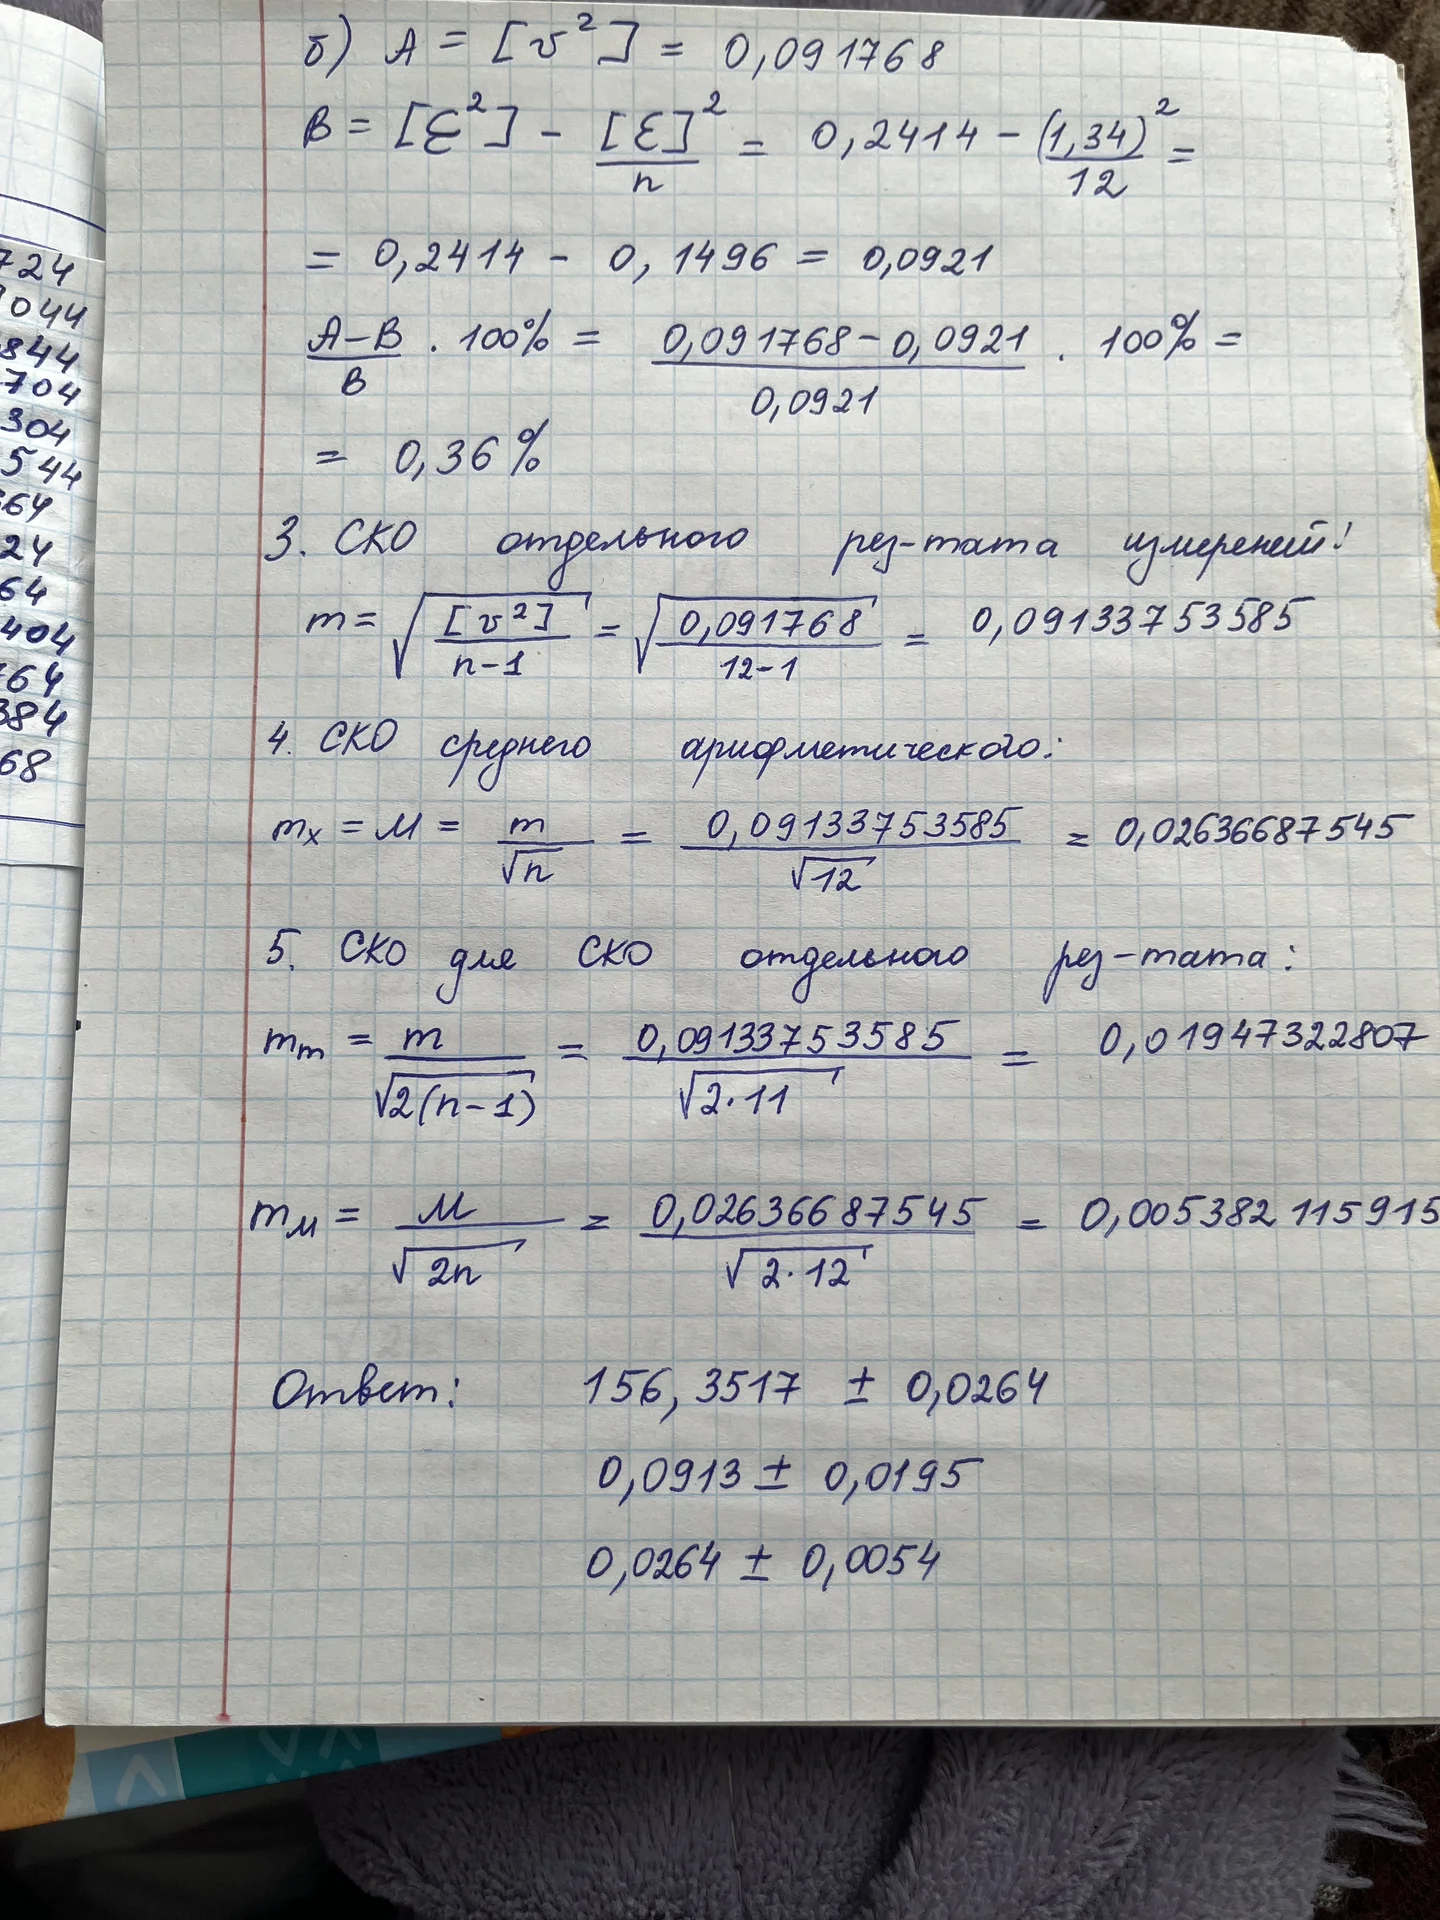 724
044
844
704
304
544
64
24
64
404
764
384
68
б) A = [v²] = 0,091768
B = [Ɛ²] - [Ɛ]²/n = 0,2414 - (1,34)²/12 =
= 0,2414 - 0,1496 = 0,0921
A-B/B · 100% = 0,091768-0,0921/0,0921 · 100% =
= 0,36%
3. СКО отдельного рез-тата измерений:
m = √[v²]/n-1 = √0,091768/12-1 = 0,09133753585
4. СКО среднего арифметического:
mₓ = M = m/√n = 0,09133753585/√12 = 0,02636687545
5. СКО для СКО отдельного рез-тата:
mₘ = m/√2(n-1) = 0,09133753585/√2·11 = 0,01947322807
m_M = M/√2n = 0,02636687545/√2·12 = 0,005382115915
Ответ: 156,3517 ± 0,0264
0,0913 ± 0,0195
0,0264 ± 0,0054